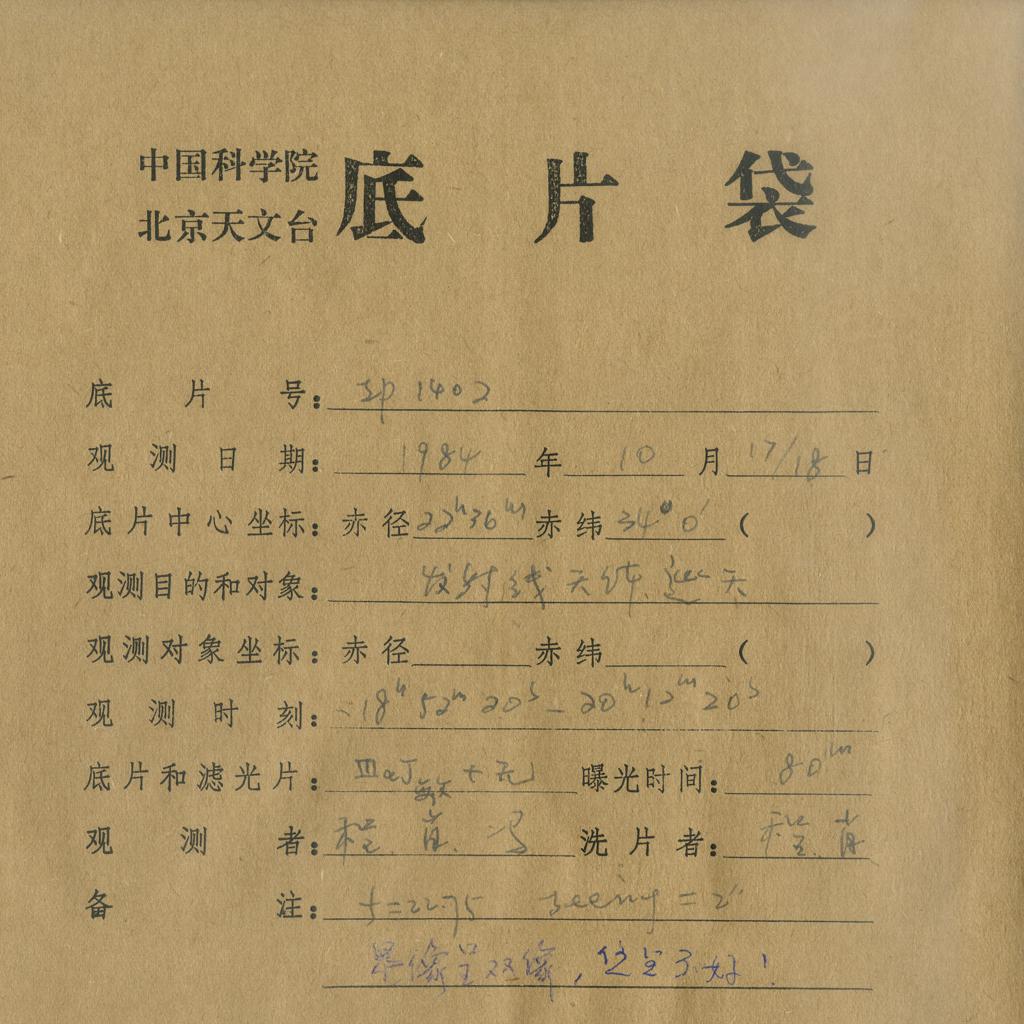 中国科学院
北京天文台
底片袋
底片号: 1402
观测日期: 1984年10月17/18日
底片中心坐标: 赤径22ʰ36ᵐ赤纬34°0′( )
观测目的和对象: 发射线天体巡天
观测对象坐标: 赤径 赤纬 ( )
观测时刻: 18ʰ52ᵐ20ˢ—20ʰ12ᵐ20ˢ
底片和滤光片: ⅢaJ敏天+无 曝光时间: 80ᵐ
观测者: 程、肖、冯 洗片者: 程、肖
备注: f=22.75 seeing=2″
星像呈双像, 不好!